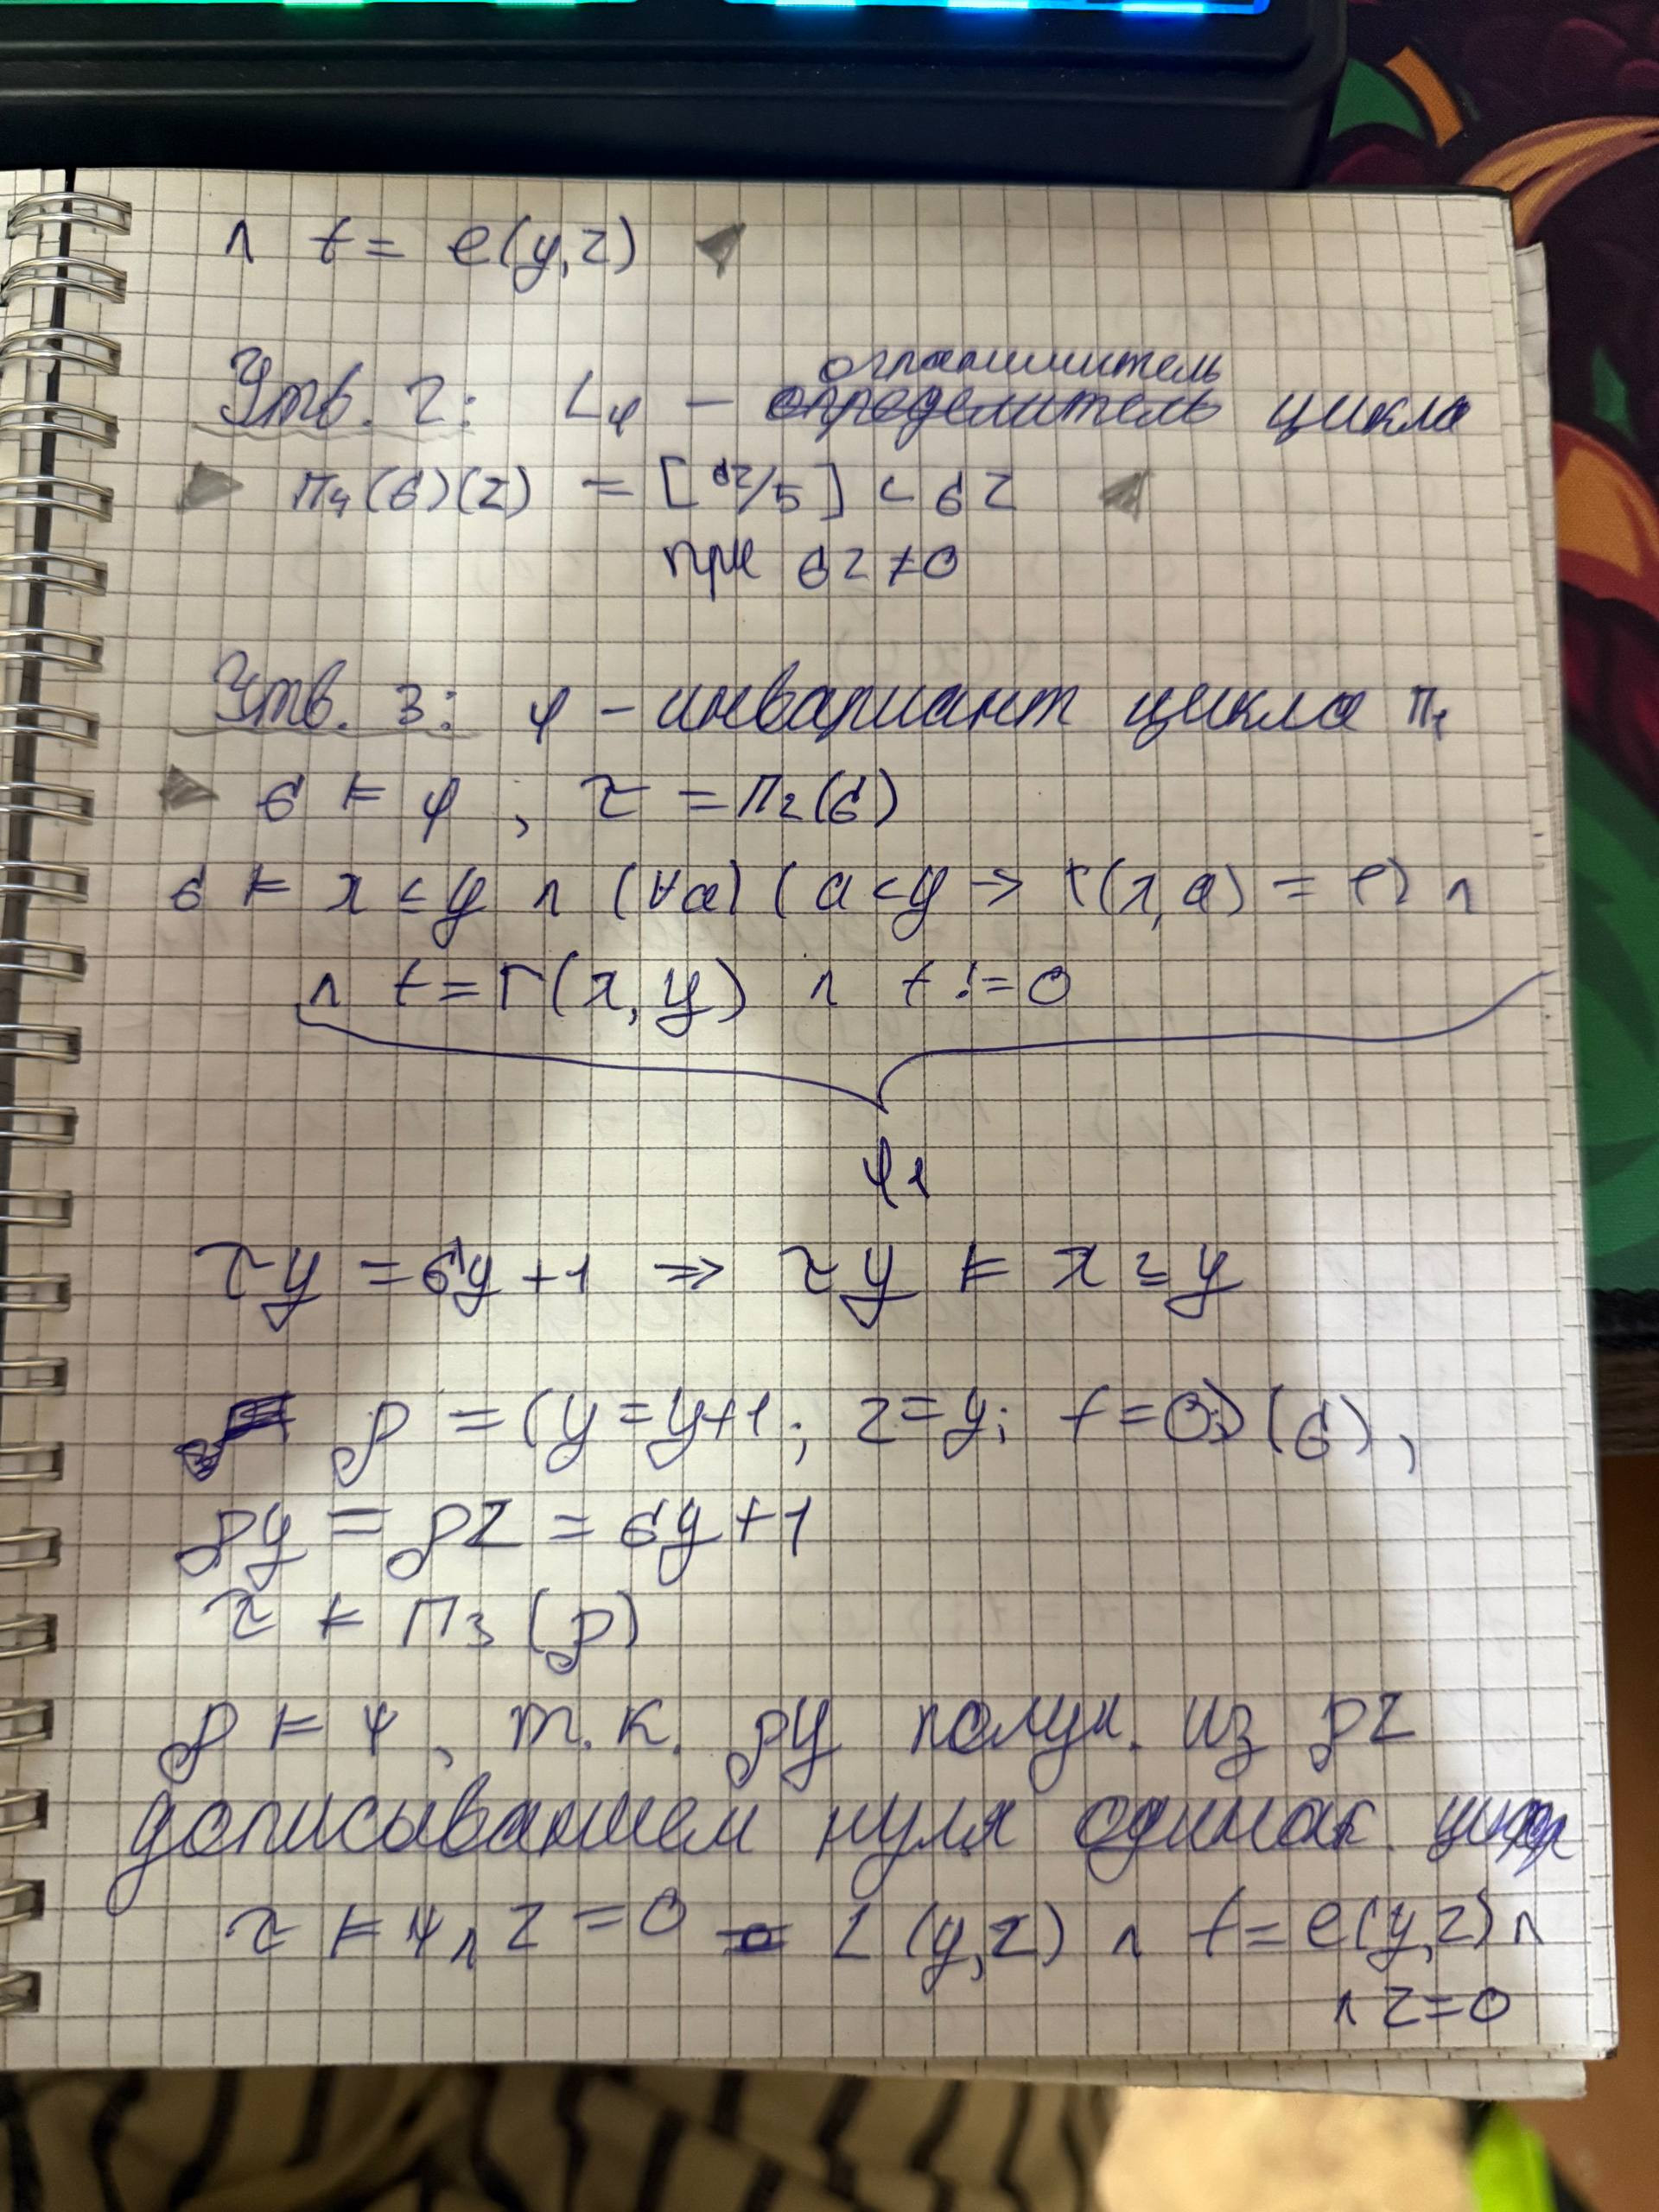 ∧ t = e(y,z) ◀
Утв. 2: Lφ – ограничитель цикла
▶ П₄(σ)(z) = [σz/5] < σz ◀
при σz ≠ 0
Утв. 3: φ – инвариант цикла П₁
▶ σ ⊨ φ ; τ = П₂(σ)
σ ⊨ x ≤ y ∧ (∀a) (a < y → r(x,a) = 0) ∧
∧ t = r(x,y) ∧ t != 0
φ₁
τy = σy + 1 ⇒ τy ⊨ x ≤ y
ρ = (y = y+1; z = y; t = 0;)(σ),
ρy = ρz = σy + 1
τ ⊨ П₃(ρ)
ρ ⊨ ψ, т.к. ρy получ. из ρz
дописыванием нуля одинак. цифр
τ ⊨ ψ ∧ z = 0 = L(y,z) ∧ t = e(y,z) ∧
∧ z = 0